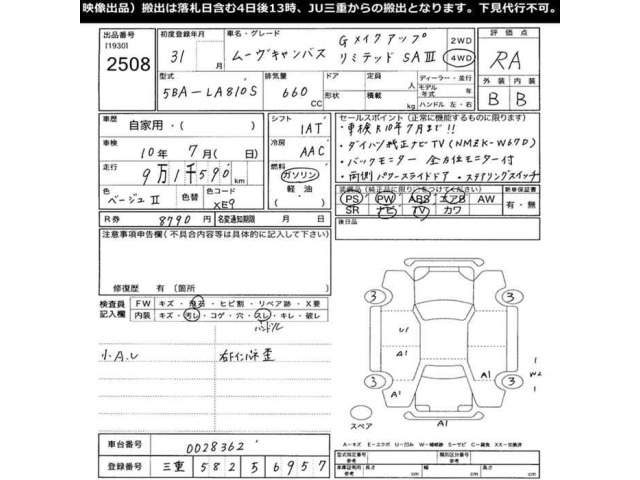 映像出品）搬出は落札日含む4日後13時、JU三重からの搬出となります。下見代行不可。
出品番号 初度登録年月 車名・グレード 評価点
[1930] 2508 31年 月 ムーヴキャンバス Gメイクアップ リミテッド SAⅢ 2WD 4WD RA
型式 排気量 ドア 定員 ディーラー・並行 外装 内装
5BA-LA810S 660 CC 形状 積載 人 kg モデル年式 年 ハンドル 左・右 B B
車歴 自家用・( ) シフト 1AT
セールスポイント (正常に機能するものに限ります)
・車検R10年7月まで!!
車検 10年 7月( 日) 冷房 AAC
・ダイハツ純正ナビTV(NMZK-W67D)
・バックモニター 全方位モニター付
走行 9万1千590 km 燃料 ガソリン 軽油 ( )
・両側パワースライドドア ・ステアリングスイッチ
色 ベージュⅡ 色替 色コード XE9
装備品 (純正品に限り○をつけてください) 新車保証書
PS PW ABS エアB AW 有・無
SR ナビ TV カワ
R券 8790円 名変通知期限 月 日
後日品
注意事項申告欄(不具合内容等は具体的に記入して下さい)
修復歴 有 (箇所 )
検査員記入欄 FW キズ・飛石・ヒビ割・リペア跡・X要
内装 キズ・汚レ・コゲ・穴・スレ・キレ・破レ
ハンドル
小A.U 右Fインパネ歪
3 3
U1
A1 A1 1
W2
1
3 3
スペア A1
A-キズ E-エクボ U-凹み W-補修跡 S-サビ C-腐食 XX-交換済
車台番号 0028362
型式指定番号 参考 類別区分番号 参考
登録番号 三重 582 5 6957
車庫証明用 参考 長さ cm 幅 cm 高さ cm